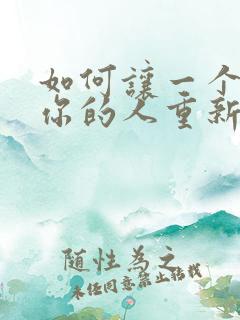 如何讓一个
你的人重新
随性為之
未经同意禁止转载